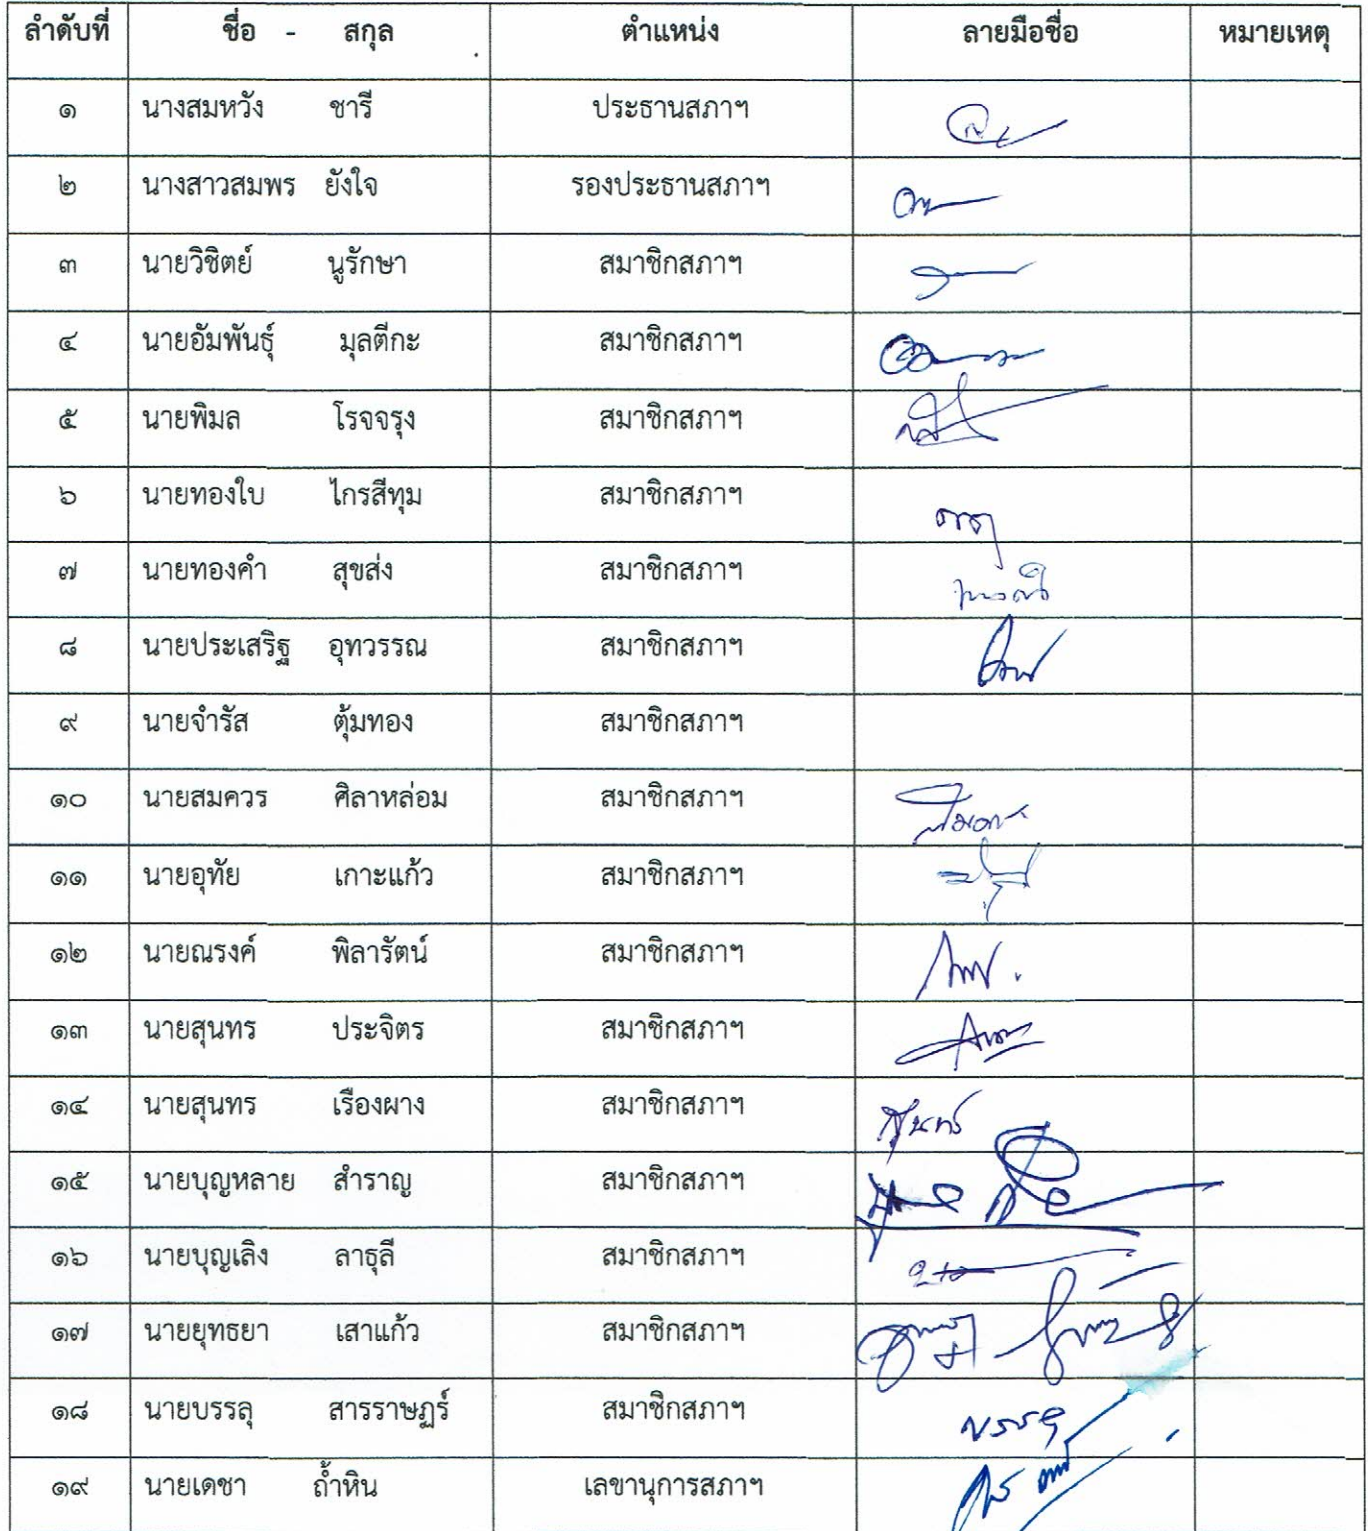 ลำดับที่ ชื่อ - สกุล ตำแหน่ง ลายมือชื่อ หมายเหตุ
๑ นางสมหวัง ชารี ประธานสภาฯ
๒ นางสาวสมพร ยังใจ รองประธานสภาฯ
๓ นายวิชิตย์ นูรักษา สมาชิกสภาฯ
๔ นายอัมพันธุ์ มุลตีกะ สมาชิกสภาฯ
๕ นายพิมล โรจจรุง สมาชิกสภาฯ
๖ นายทองใบ ไกรสีทุม สมาชิกสภาฯ
๗ นายทองคำ สุขส่ง สมาชิกสภาฯ
๘ นายประเสริฐ อุทวรรณ สมาชิกสภาฯ
๙ นายจำรัส ตุ้มทอง สมาชิกสภาฯ
๑๐ นายสมควร ศิลาหล่อม สมาชิกสภาฯ
๑๑ นายอุทัย เกาะแก้ว สมาชิกสภาฯ
๑๒ นายณรงค์ พิลารัตน์ สมาชิกสภาฯ
๑๓ นายสุนทร ประจิตร สมาชิกสภาฯ
๑๔ นายสุนทร เรืองผาง สมาชิกสภาฯ
๑๕ นายบุญหลาย สำราญ สมาชิกสภาฯ
๑๖ นายบุญเลิง ลาธุลี สมาชิกสภาฯ
๑๗ นายยุทธยา เสาแก้ว สมาชิกสภาฯ
๑๘ นายบรรลุ สารราษฏร์ สมาชิกสภาฯ บรรลุ
๑๙ นายเดชา ถ้ำหิน เลขานุการสภาฯ